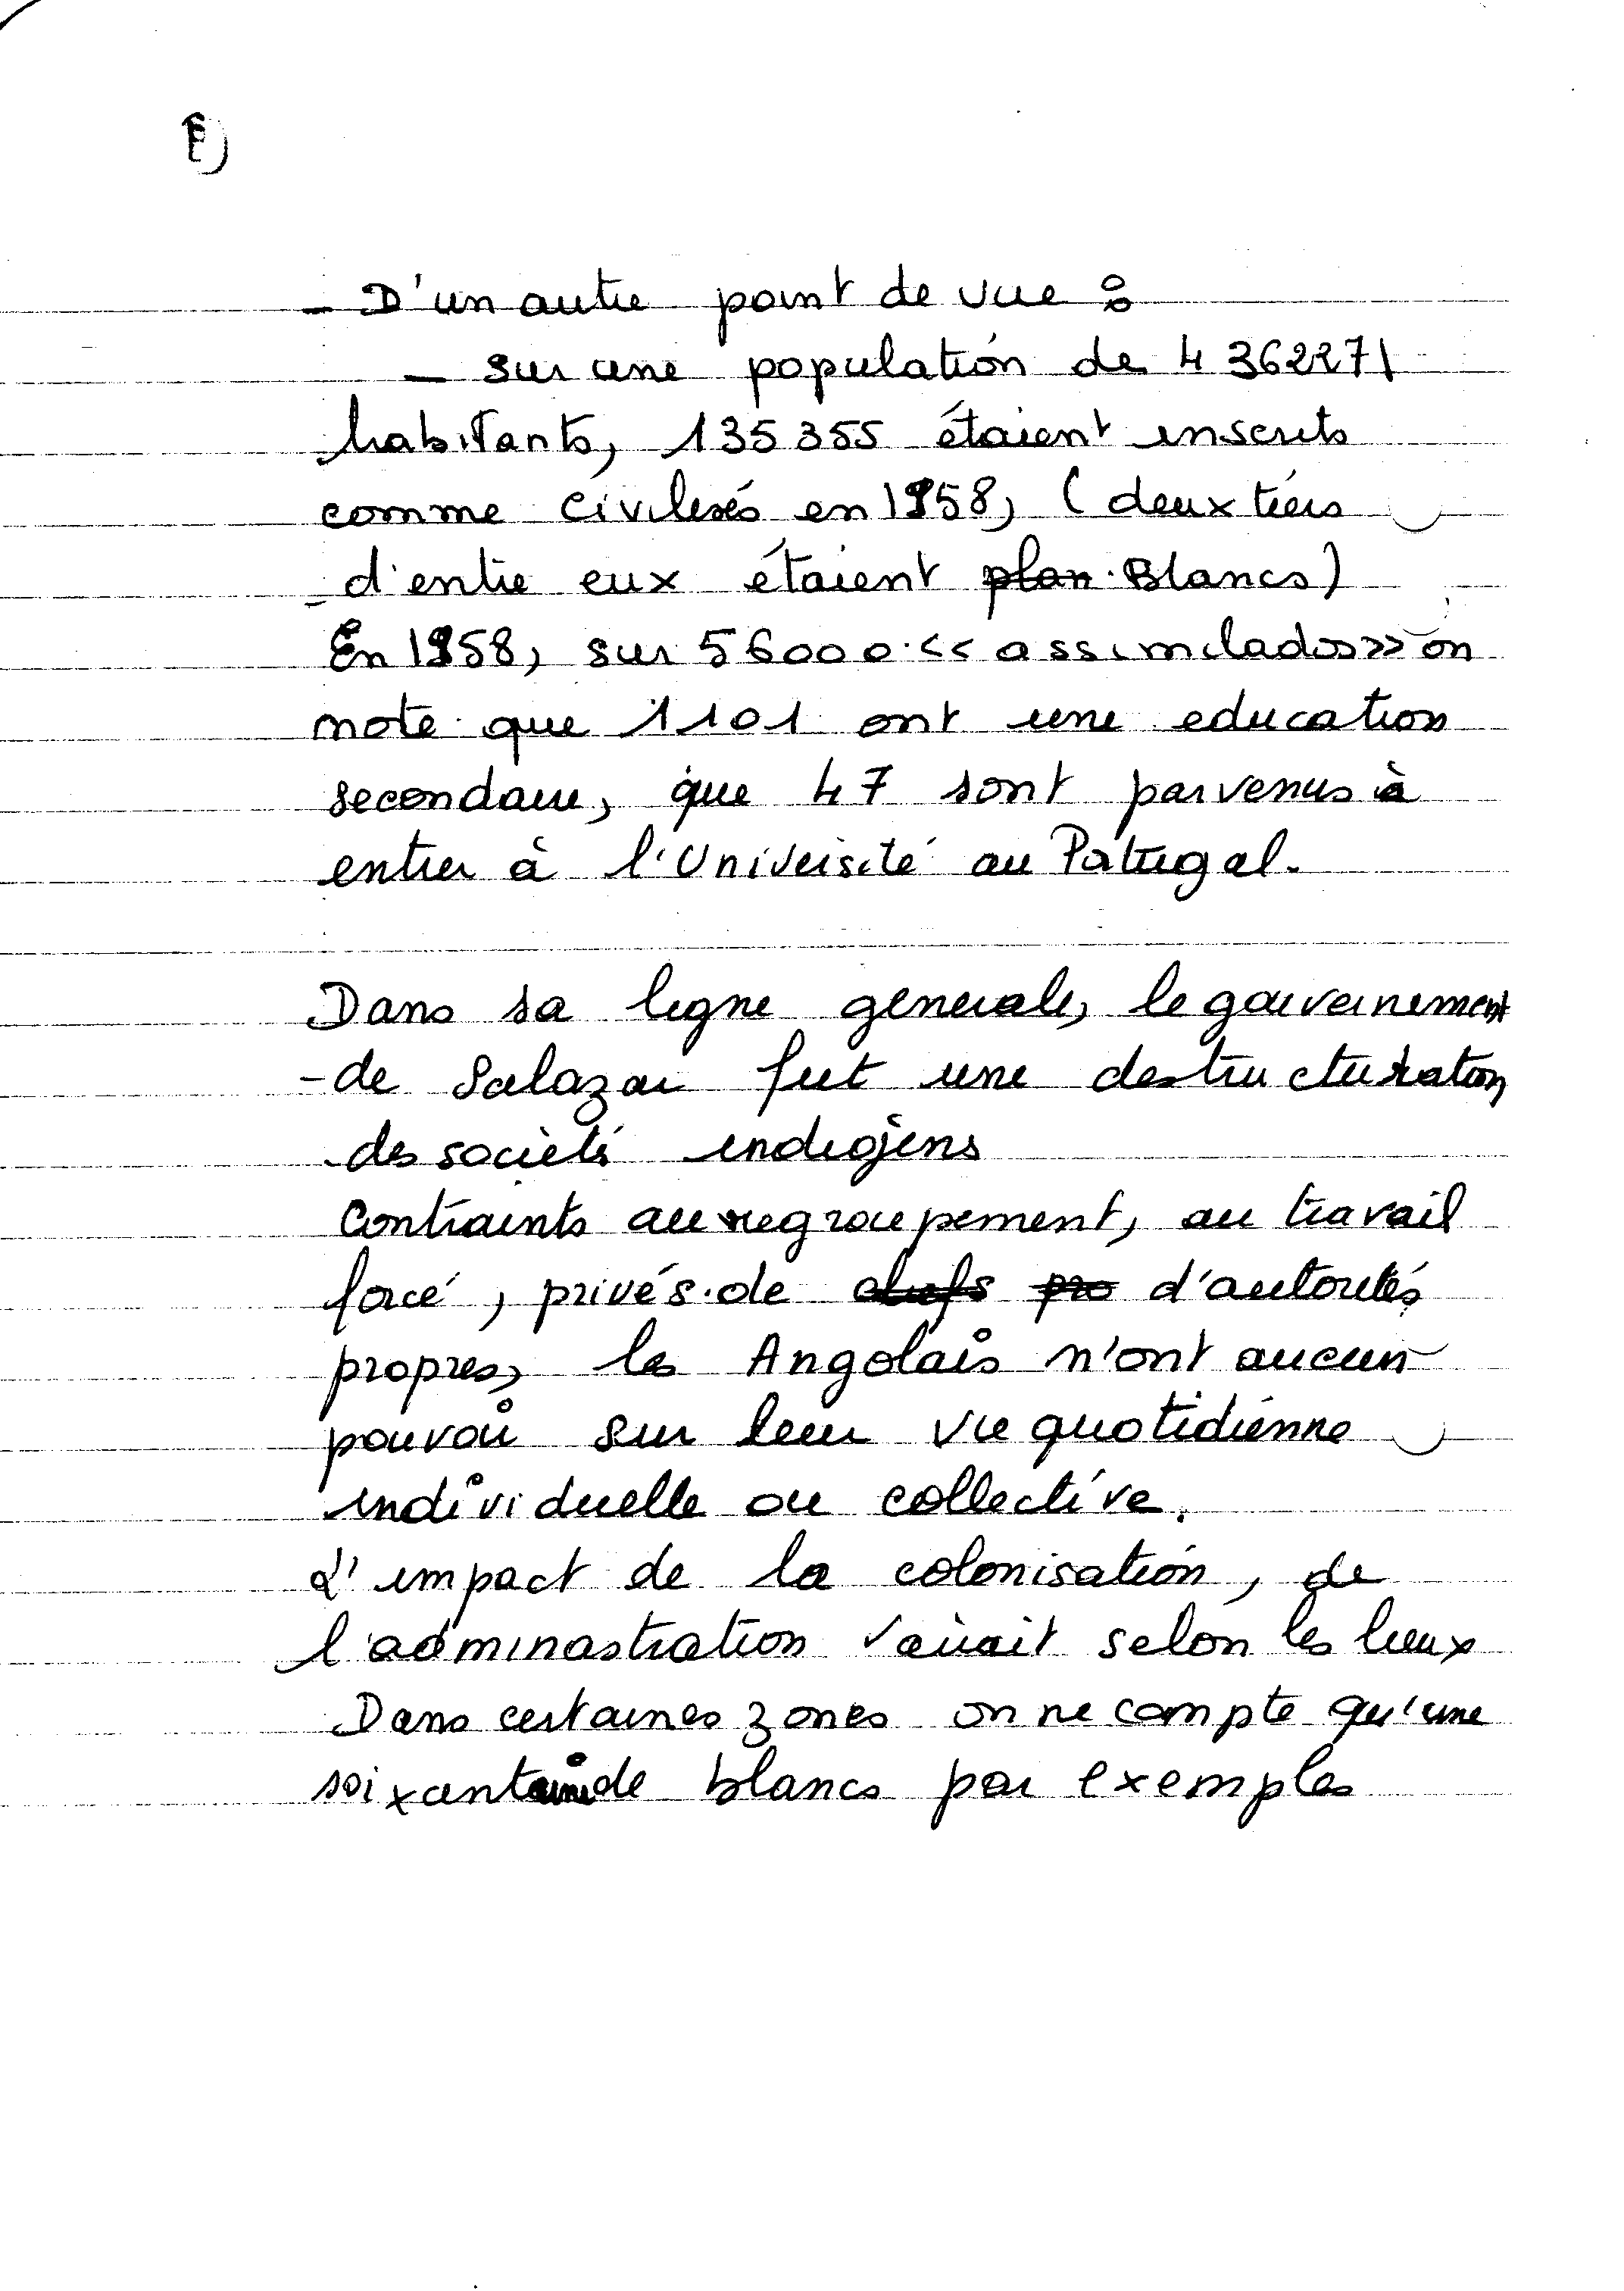 - D'un autre point de vue :
- sur une population de 4 362271
habitants, 135 355 étaient inscrits
comme civilisés en 1958, (deux tiers
d'entre eux étaient plan Blancs)
En 1958, sur 56000 << assimilados>> on
note que 1101 ont une education
secondaire, que 47 sont parvenus à
entrer à l'Université au Portugal.
Dans sa ligne generale, le gouvernement
- de Salazar fut une destructuration
des sociétés indigens
Contraints au regroupement, au travail
forcé, privés de chefs pro d'autorités
propres, les Angolais n'ont aucun
pouvoir sur leur vie quotidienne
individuelle ou collective.
L'impact de la colonisation, de
l'adminastration variait selon les lieux
Dans certaines zones on ne compte qu'une
soixantaine de blancs par exemples